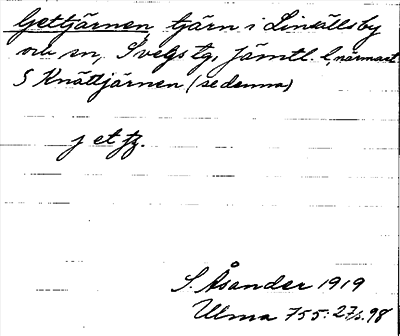 Gettjärnen, tjärn i Linsällsby
och sn, Svegs tg, Jämtl. l, närmast
S Knättjärnen (se denna)
j et tj.
S. Åsander 1919
Ulma 755:27 s. 98